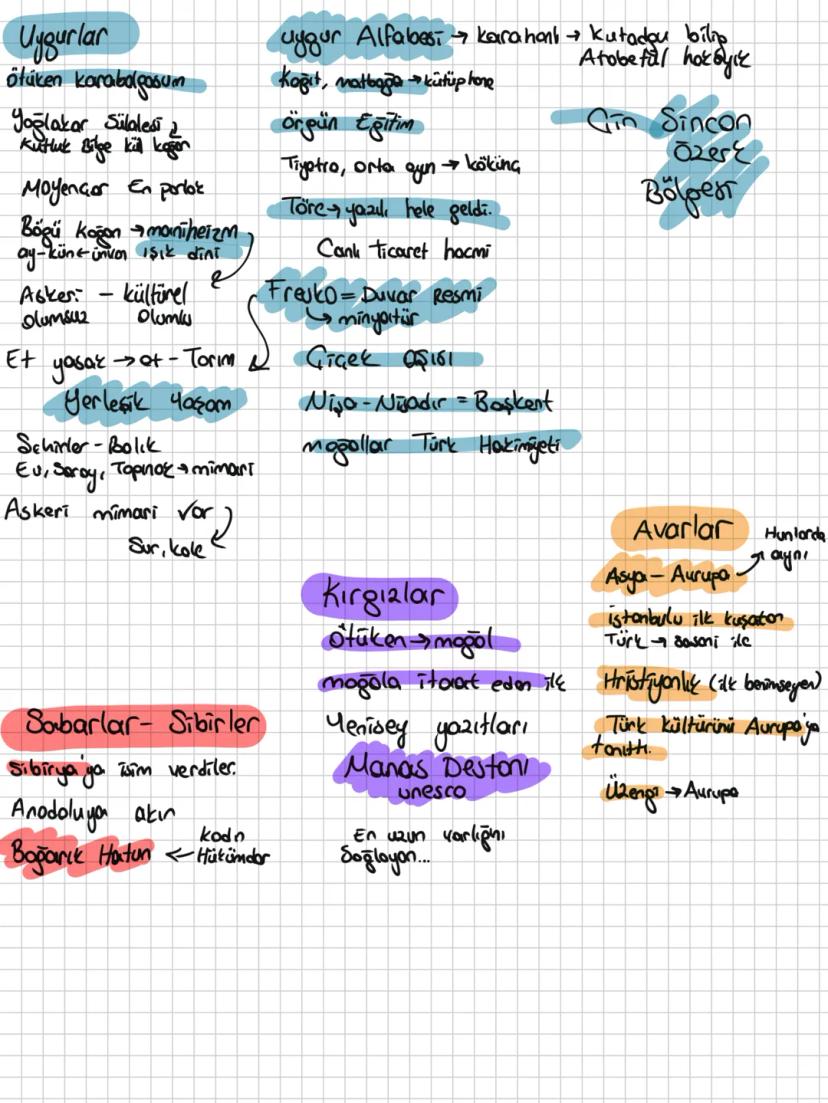 Uygurlar
ötüken karabalgasum
Yağlakar Sülalesi
Kutluk Bilge kül kağan
Moyençor En parlak
Bögü kağan → maniheizm
ay-kün ← ünvan ışık dini
Askeri - kültürel
olumsuz olumlu
Et yasak → ot - Tarım
Yerleşik Yaşam
Şehirler - Balık
Ev, Saray, Tapınak → mimari
Askeri mimari var
Sur, kale
uygur Alfabesi → karahanlı → kutadgu bilig
Atabetül hakayık
Kağıt, matbağa → kütüphane
örgün Eğitim
Tiyatro, orta oyn → kökünç
Töre → yazılı hale geldi.
Canlı ticaret hacmi
Fresko = Duvar Resmi
→ minyatür
Çiçek aşısı
Nişa - Nişadır = Başkent
moğollar Türk Hakimiyeti
Çin Sincan
özerk
Bölgesi
Kırgızlar
ötüken → moğol
moğola itaat eden ilk
Yenisey yazıtları
Manas Destanı
unesco
En uzun varlığını
Sağlayan...
Avarlar
Hunlarda
aynı
Asya - Avrupa
istanbulu ilk kuşatan
Türk → sasani ile
Hristiyanlık (ilk benimseyen)
Türk kültürünü Avrupa'ya
tanıttı.
Üzengi → Avrupa
Sabarlar - Sibirler
Sibirya'ya isim verdiler.
Anadoluya akın
Boğarık Hatun ← kadn
Hükümdar